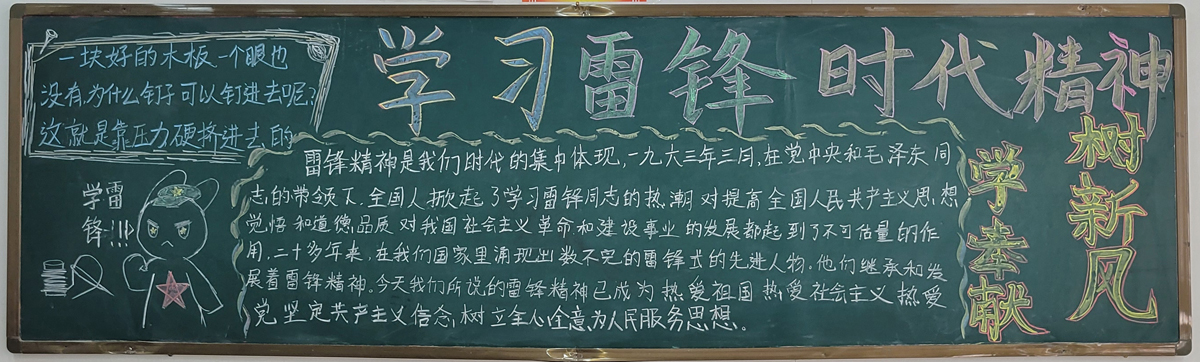 学习雷锋 时代精神
一块好的木板一个眼也
没有,为什么钉子可以钉进去呢?
这就是靠压力硬挤进去的
学雷
锋!!!
雷锋精神是我们时代的集中体现,一九六三年三月,在党中央和毛泽东同
志的带领下,全国人掀起了学习雷锋同志的热潮,对提高全国人民共产主义思想
觉悟和道德品质 对我国社会主义革命和建设事业的发展都起到了不可估量的作
用,二十多年来,在我们国家里涌现出数不完的雷锋式的先进人物,他们继承和发
展着雷锋精神。今天我们所说的雷锋精神已成为热爱祖国 热爱社会主义 热爱
党,坚定共产主义信念,树立全心全意为人民服务思想。
学奉献
树新风